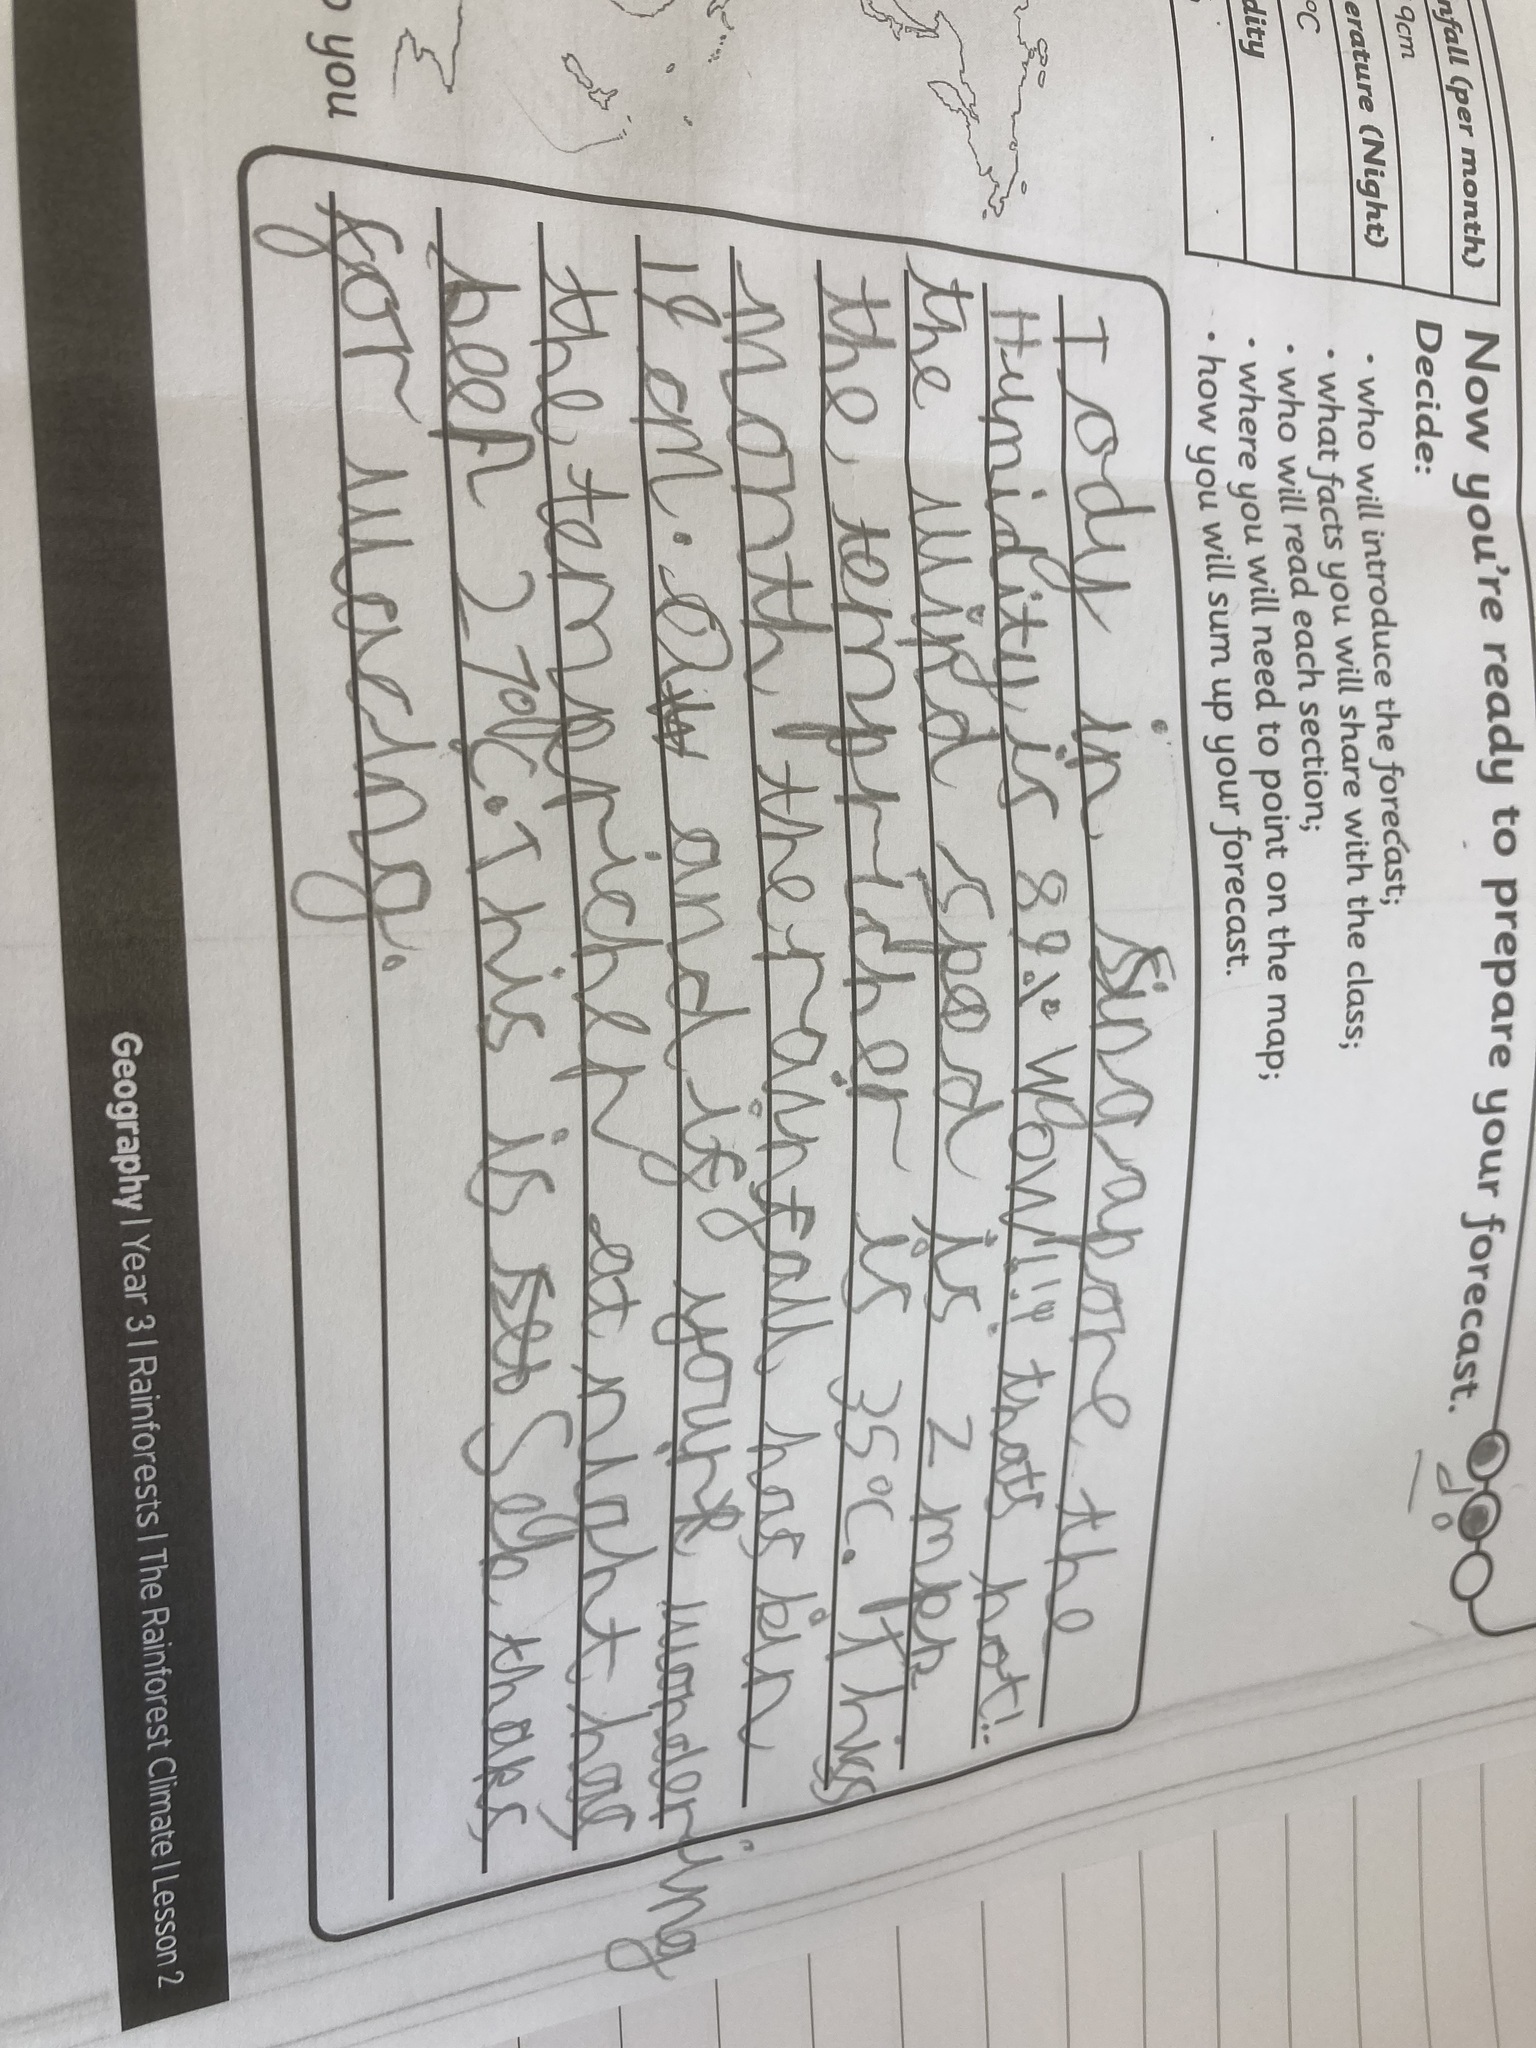 nfall (per month)
9cm
erature (Night)
°C
dity
you
Now you're ready to prepare your forecast.
Decide:
• who will introduce the forecast;
• what facts you will share with the class;
• who will read each section;
• where you will need to point on the map;
• how you will sum up your forecast.
Tody in Singapore the
Humidity is 89% Wow!!! thats hot!
the wind speed is 2 mph
the tempricher is 35°c. This
month the rainfall has bin
19 cm. and if your wondering
the tempricher at night has
been 27°C. This is Seb thaks
for waching.
Geography | Year 3 | Rainforests | The Rainforest Climate | Lesson 2